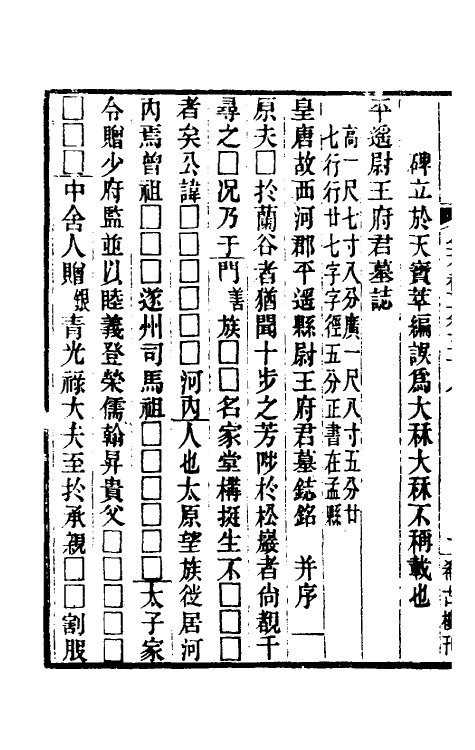 碑立於天寶萃編誤爲大秝大秝不稱載也
平遥尉王府君墓誌
高一尺七寸八分廣一尺八寸五分廿
七行行廿七字字徑五分正書在孟縣
皇唐故西河郡平遥縣尉王府君墓鋕銘 并序
原夫□於蘭谷者猶聞十步之芳陟於松巖者尙覩千
尋之□况乃于門善族□□名家堂構挺生不□□□
者矣公諱□□□□□□河内人也太原望族徙居河
内焉曾祖□□□遂州司馬祖□□□□□□太子家
令贈少府監並以睦義登榮儒翰昇貴父□□□□□
□□□中舍人贈銀青光祿大夫至於承親□□割股
希古樓刊